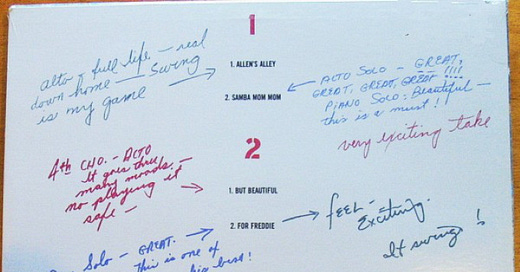 1
alto - full life. - real
down home - Swing
is my game
1. ALLEN'S ALLEY
2. SAMBA MOM MOM
ALTO SOLO - GREAT,
GREAT, GREAT, GREAT !!!!
PIANO SOLO: Beautiful -
this is a must !!
very exciting take
2
4th CHO. - ALTO
It goes thru
many moods. -
no playing it
safe -
1. BUT BEAUTIFUL
2. FOR FREDDIE
feel -
Exciting.
It swings !
Solo - GREAT.
this is one of
his best!